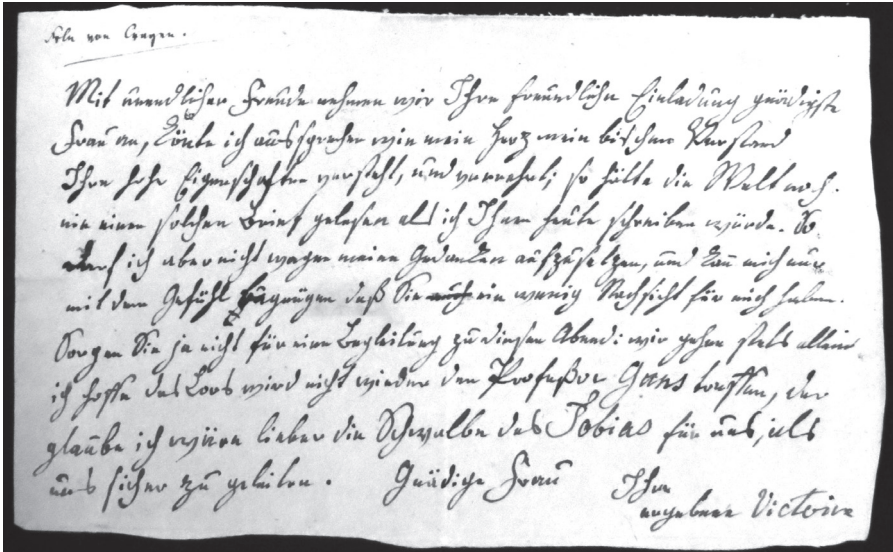 Frln von Crayen.
Mit unendlicher Freude nehmen wir Ihre freundliche Einladung gnädigste
Frau an, könte ich aussprechen wie mein Herz mein bischen Verstand
Ihre hohe Eigenschaften versteht, und verehrt; so hätte die Welt noch
nie einen solchen Brief gelesen als ich Ihnen heute schreiben würde. So
darf ich aber nicht wagen meine Gedanken aufzusetzen, und kan mich nur
mit dem Gefühl begnügen daß Sie ein wenig Nachsicht für mich haben.
Sorgen Sie ja nicht für eine Begleitung zu diesen Abend: wir gehen stets allein
ich hoffe das Loos wird nicht wieder den Profeßor Gans treffen, der
glaube ich wäre lieber die Schwalbe des Tobias für uns, als
uns sicher zu geleiten. Gnädige Frau Ihre
ergebene Victoire